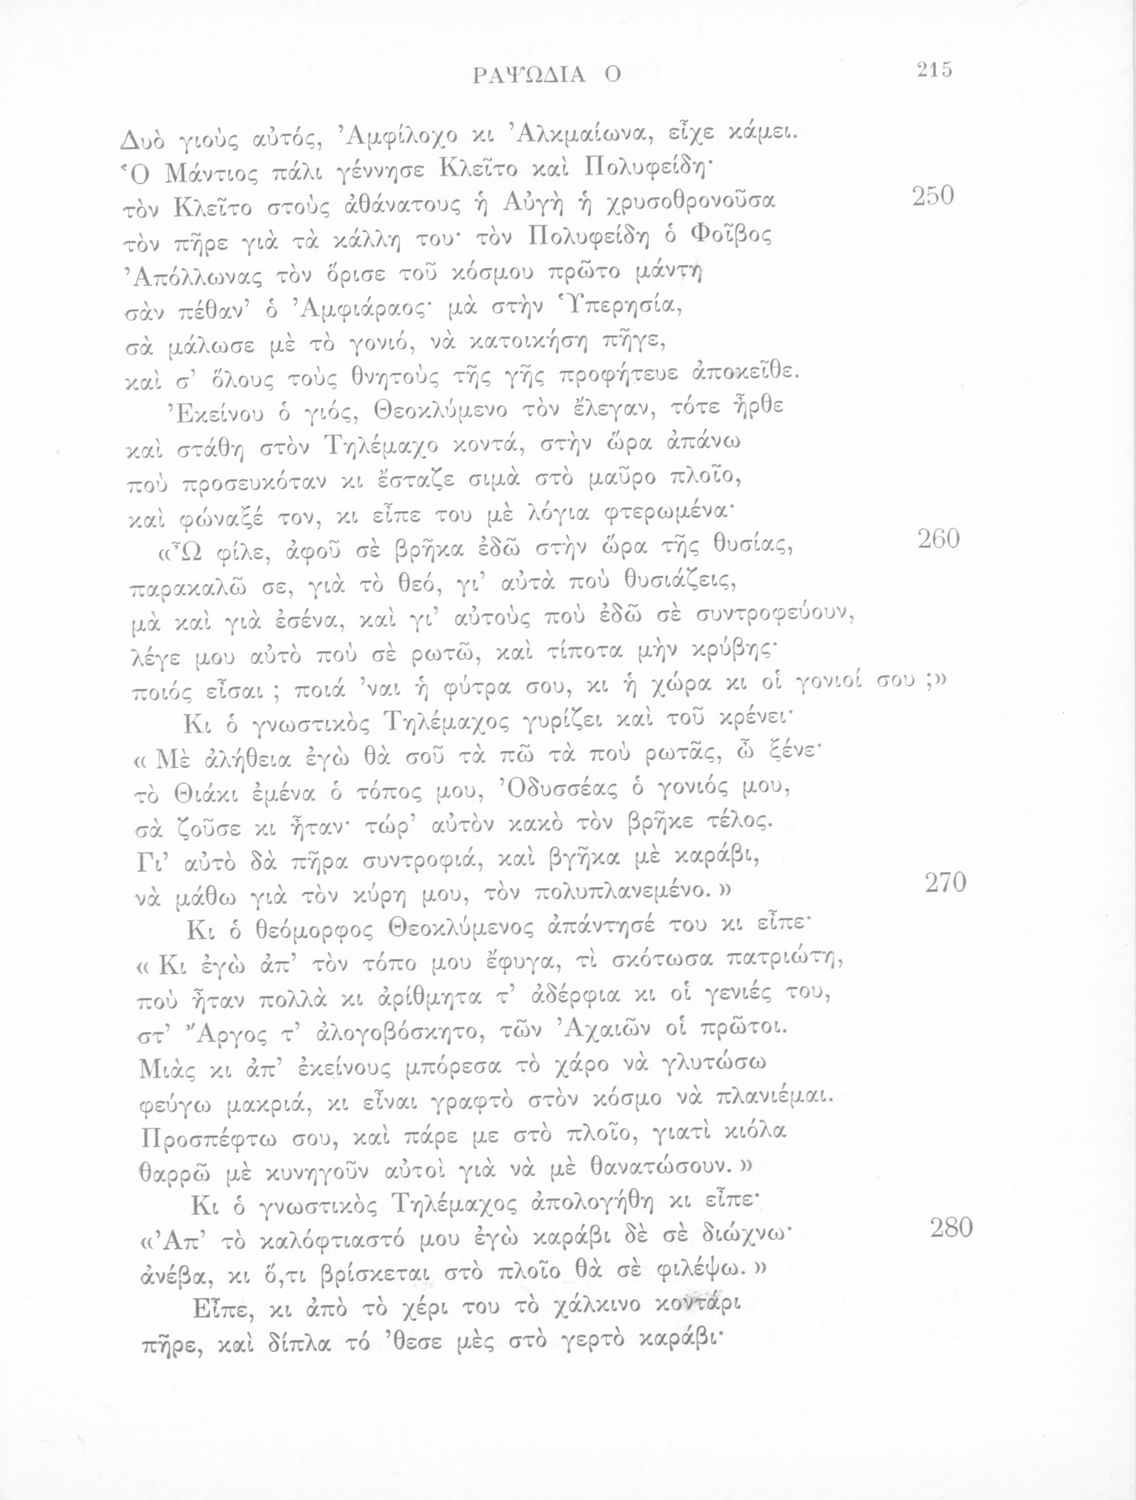 ΡΑΨΩΔΙΑ Ο 215
Δυὸ γιοὺς αὐτός, Ἀμφίλοχο κι Ἀλκμαίωνα, εἶχε κάμει.
Ὁ Μάντιος πάλι γέννησε Κλεῖτο καὶ Πολυφείδη·
τὸν Κλεῖτο στοὺς ἀθάνατους ἡ Αὐγὴ ἡ χρυσοθρονοῦσα 250
τὸν πῆρε γιὰ τὰ κάλλη του· τὸν Πολυφείδη ὁ Φοῖβος
Ἀπόλλωνας τὸν ὅρισε τοῦ κόσμου πρῶτο μάντη
σὰν πέθαν’ ὁ Ἀμφιάραος· μὰ στὴν Ὑπερησία,
σὰ μάλωσε μὲ τὸ γονιό, νὰ κατοικήση πῆγε,
καὶ σ’ ὅλους τοὺς θνητοὺς τῆς γῆς προφήτευε ἀποκεῖθε.
Ἐκείνου ὁ γιός, Θεοκλύμενο τὸν ἔλεγαν, τότε ἦρθε
καὶ στάθη στὸν Τηλέμαχο κοντά, στὴν ὥρα ἀπάνω
ποὺ προσευκόταν κι ἔσταζε σιμὰ στὸ μαῦρο πλοῖο,
καὶ φώναξέ τον, κι εἶπε του μὲ λόγια φτερωμένα·
«Ὦ φίλε, ἀφοῦ σὲ βρῆκα ἐδῶ στὴν ὥρα τῆς θυσίας, 260
παρακαλῶ σε, γιὰ τὸ θεό, γι’ αὐτὰ ποὺ θυσιάζεις,
μὰ καὶ γιὰ ἐσένα, καὶ γι’ αὐτοὺς ποὺ ἐδῶ σὲ συντροφεύουν,
λέγε μου αὐτὸ ποὺ σὲ ρωτῶ, καὶ τίποτα μὴν κρύβης·
ποιός εἶσαι ; ποιά ’ναι ἡ φύτρα σου, κι ἡ χώρα κι οἱ γονιοί σου ;»
Κι ὁ γνωστικὸς Τηλέμαχος γυρίζει καὶ τοῦ κρένει·
« Μὲ ἀλήθεια ἐγὼ θὰ σοῦ τὰ πῶ τὰ ποὺ ρωτᾶς, ὦ ξένε·
τὸ Θιάκι ἐμένα ὁ τόπος μου, Ὀδυσσέας ὁ γονιός μου,
σὰ ζοῦσε κι ἦταν· τώρ’ αὐτὸν κακὸ τὸν βρῆκε τέλος.
Γι’ αὐτὸ δὰ πῆρα συντροφιά, καὶ βγῆκα μὲ καράβι,
νὰ μάθω γιὰ τὸν κύρη μου, τὸν πολυπλανεμένο. » 270
Κι ὁ θεόμορφος Θεοκλύμενος ἀπάντησέ του κι εἶπε·
« Κι ἐγὼ ἀπ’ τὸν τόπο μου ἔφυγα, τὶ σκότωσα πατριώτη,
ποὺ ἦταν πολλὰ κι ἀρίθμητα τ’ ἀδέρφια κι οἱ γενιές του,
στ’ Ἄργος τ’ ἀλογοβόσκητο, τῶν Ἀχαιῶν οἱ πρῶτοι.
Μιὰς κι ἀπ’ ἐκείνους μπόρεσα τὸ χάρο νὰ γλυτώσω
φεύγω μακριά, κι εἶναι γραφτὸ στὸν κόσμο νὰ πλανιέμαι.
Προσπέφτω σου, καὶ πάρε με στὸ πλοῖο, γιατὶ κιόλα
θαρρῶ μὲ κυνηγοῦν αὐτοὶ γιὰ νὰ μὲ θανατώσουν. »
Κι ὁ γνωστικὸς Τηλέμαχος ἀπολογήθη κι εἶπε·
«Ἀπ’ τὸ καλόφτιαστό μου ἐγὼ καράβι δὲ σὲ διώχνω· 280
ἀνέβα, κι ὅ,τι βρίσκεται στὸ πλοῖο θὰ σὲ φιλέψω. »
Εἶπε, κι ἀπὸ τὸ χέρι του τὸ χάλκινο κοντάρι
πῆρε, καὶ δίπλα τό ’θεσε μὲς στὸ γερτὸ καράβι·